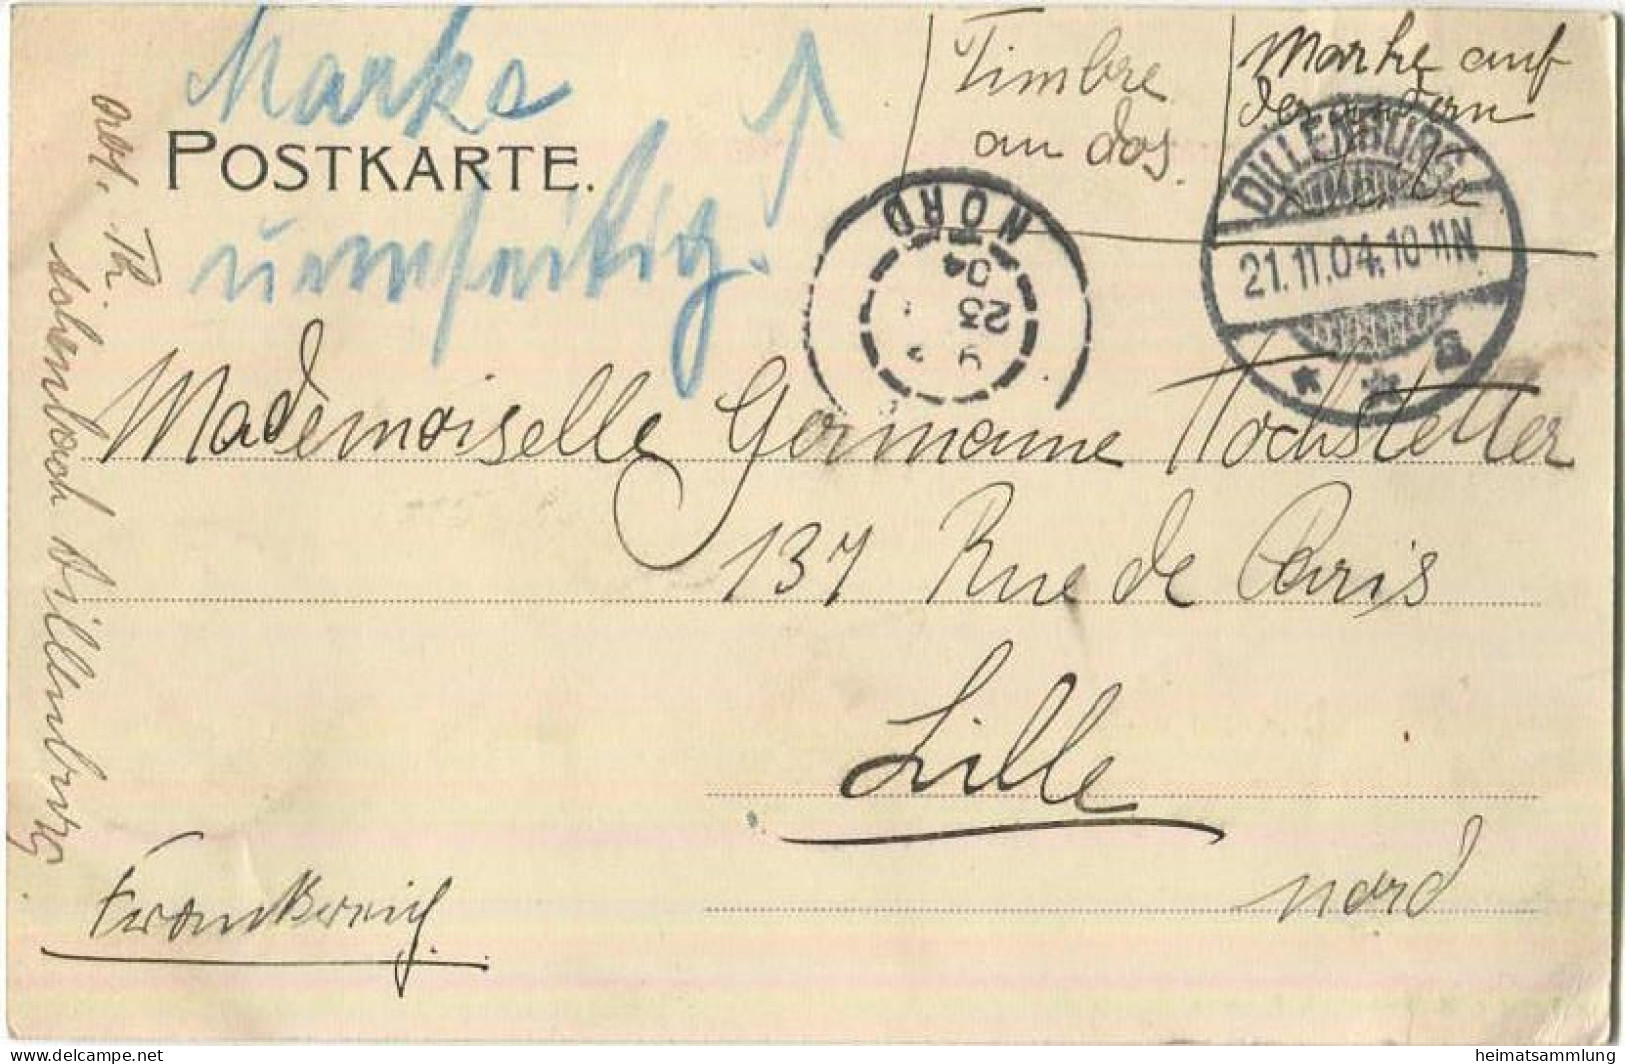 Marke
umseitig.
POSTKARTE.
Timbre
au dos.
Marke auf
der andern
Seite
NORD
23
04
DILLENBURG
21.11.04.10-11N
* * a
Mademoiselle Germaine Hochstetter
137 Rue de Paris
Lille
Nord
Frankreich.
Dillenburg.
delcampe.net
heimatsammlung